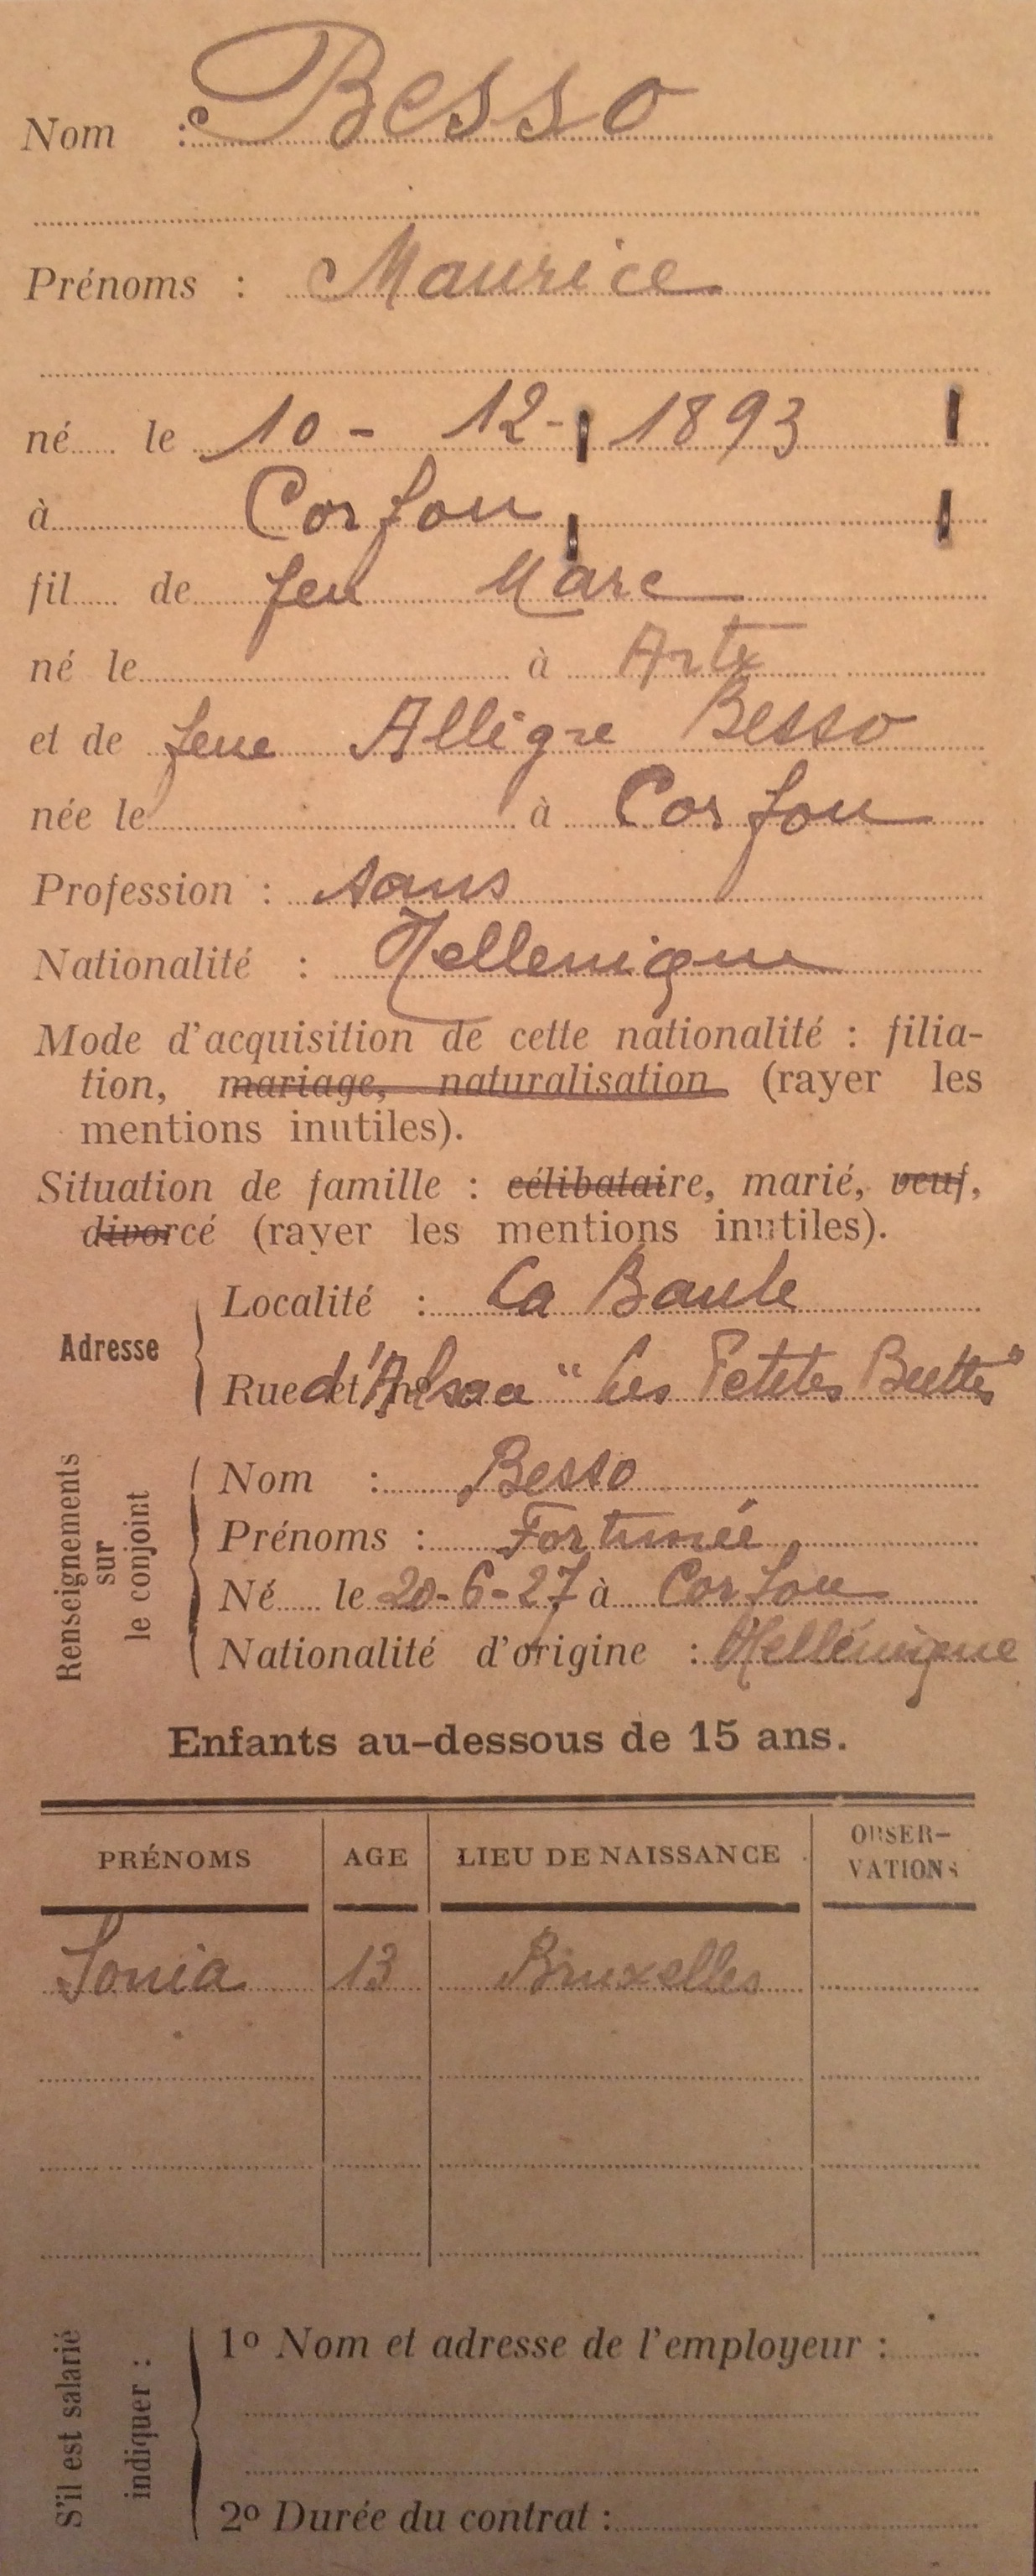 Nom : Besso
Prénoms : Maurice
né le 10 - 12 - 1893
à Corfou
fil de feu Marc
né le à Arta
et de feue Allégre Besso
née le à Corfou
Profession : sans
Nationalité : Hellenique
Mode d'acquisition de cette nationalité : filia-
tion, mariage, naturalisation (rayer les
mentions inutiles).
Situation de famille : célibataire, marié, veuf,
divorcé (rayer les mentions inutiles).
Adresse
Localité : La Baule
Rue d'Alsace "Les Petites Buttes"
Renseignements
sur
le conjoint
Nom : Besso
Prénoms : Fortunée
Né le 20-6-27 à Corfou
Nationalité d'origine : Hellénique
Enfants au-dessous de 15 ans.
PRÉNOMS AGE LIEU DE NAISSANCE OBSER-
VATIONS
Sonia 13 Bruxelles
S'il est salarié
indiquer :
1º Nom et adresse de l'employeur :
2º Durée du contrat :